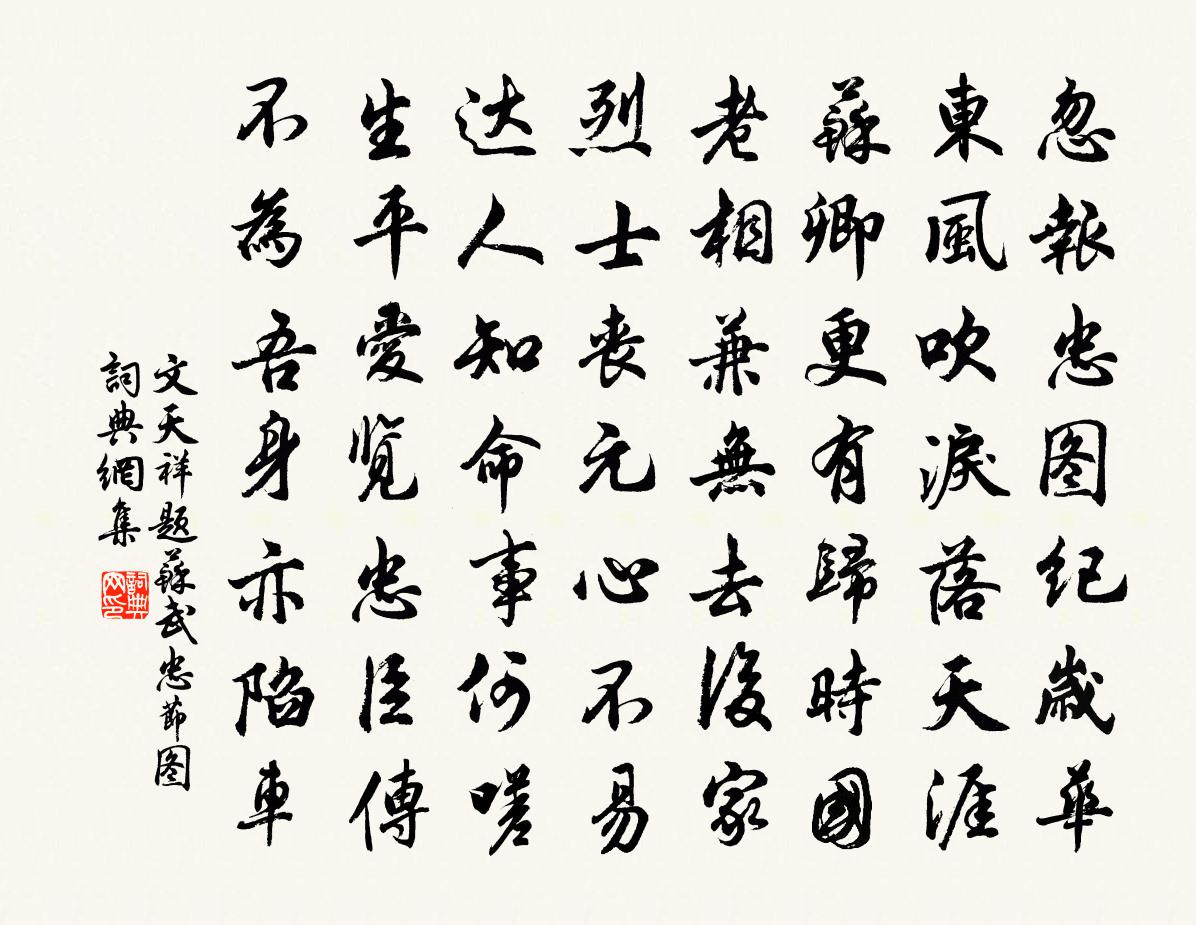 忽報忠图纪歲華
東風吹淚落天涯
蘇卿更有歸時國
老相兼無去後家
烈士喪元心不易
达人知命事何嗟
生平愛览忠臣傳
不為吾身亦陷車
文天祥题蘇武忠節图
詞典網集
詞典网印